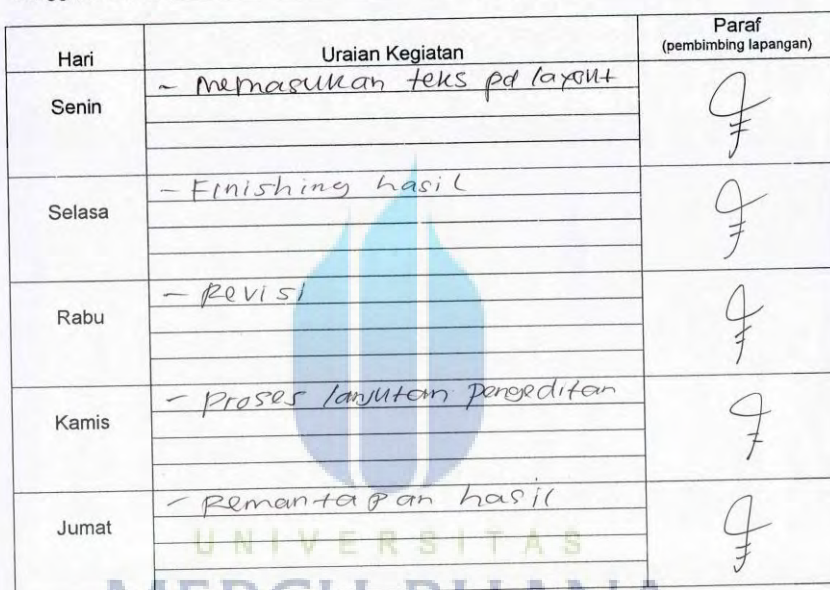 Hari Uraian Kegiatan Paraf
(pembimbing lapangan)
Senin
- Memasukan teks pd layout
Selasa
- Finishing hasil
Rabu
- Revisi
Kamis
- Proses lanjutan pengeditan
Jumat
- Pemantapan hasil
UNIVERSITAS